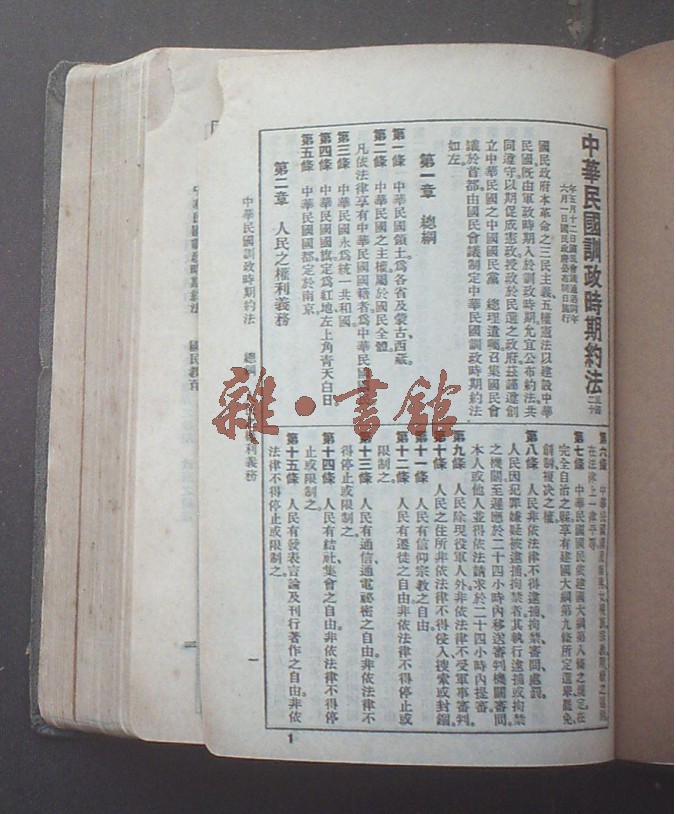 中華民國訓政時期約法
年五月十二日國民會議通過同年
六月一日國民政府公布同日施行
國民政府本革命之三民主義五權憲法以建設中華
民國既由軍政時期入於訓政時期允宜公布約法共
同遵守以期促成憲政授政於民選之政府茲謹遵創
立中華民國之中國國民黨 總理遺囑召集國民會
議於首都由國民會議制定中華民國訓政時期約法
如左
第一章 總綱
第一條 中華民國領土為各省及蒙古西藏
第二條 中華民國之主權屬於國民全體
凡依法律享有中華民國國籍者為中華民國國
第三條 中華民國永為統一共和國
第四條 中華民國國旗定為紅地左上角青天白日
第五條 中華民國國都定於南京
第二章 人民之權利義務
第六條
在法律上一律平等
第七條 中華民國國民依建國大綱第八條之規定在
完全自治之縣享有建國大綱第九條所定選舉罷免
創制複決之權
第八條 人民非依法律不得逮捕拘禁審問處罰
人民因犯罪嫌疑被逮捕拘禁者其執行逮捕或拘禁
之機關至遲應於二十四小時內移送審判機關審問
本人或他人並得依法請求於二十四小時內提審
第九條 人民除現役軍人外非依法律不受軍事審判
第十條 人民之住所非依法律不得侵入搜索或封錮
第十一條 人民有信仰宗教之自由
第十二條 人民有遷徙之自由非依法律不得停止或
限制之
第十三條 人民有通信通電秘密之自由非依法律不
得停止或限制之
第十四條 人民有結社集會之自由非依法律不得停
止或限制之
第十五條 人民有發表言論及刊行著作之自由非依
法律不得停止或限制之
中華民國訓政時期約法 總綱 權利義務
一
1
國民教育
雜·書館